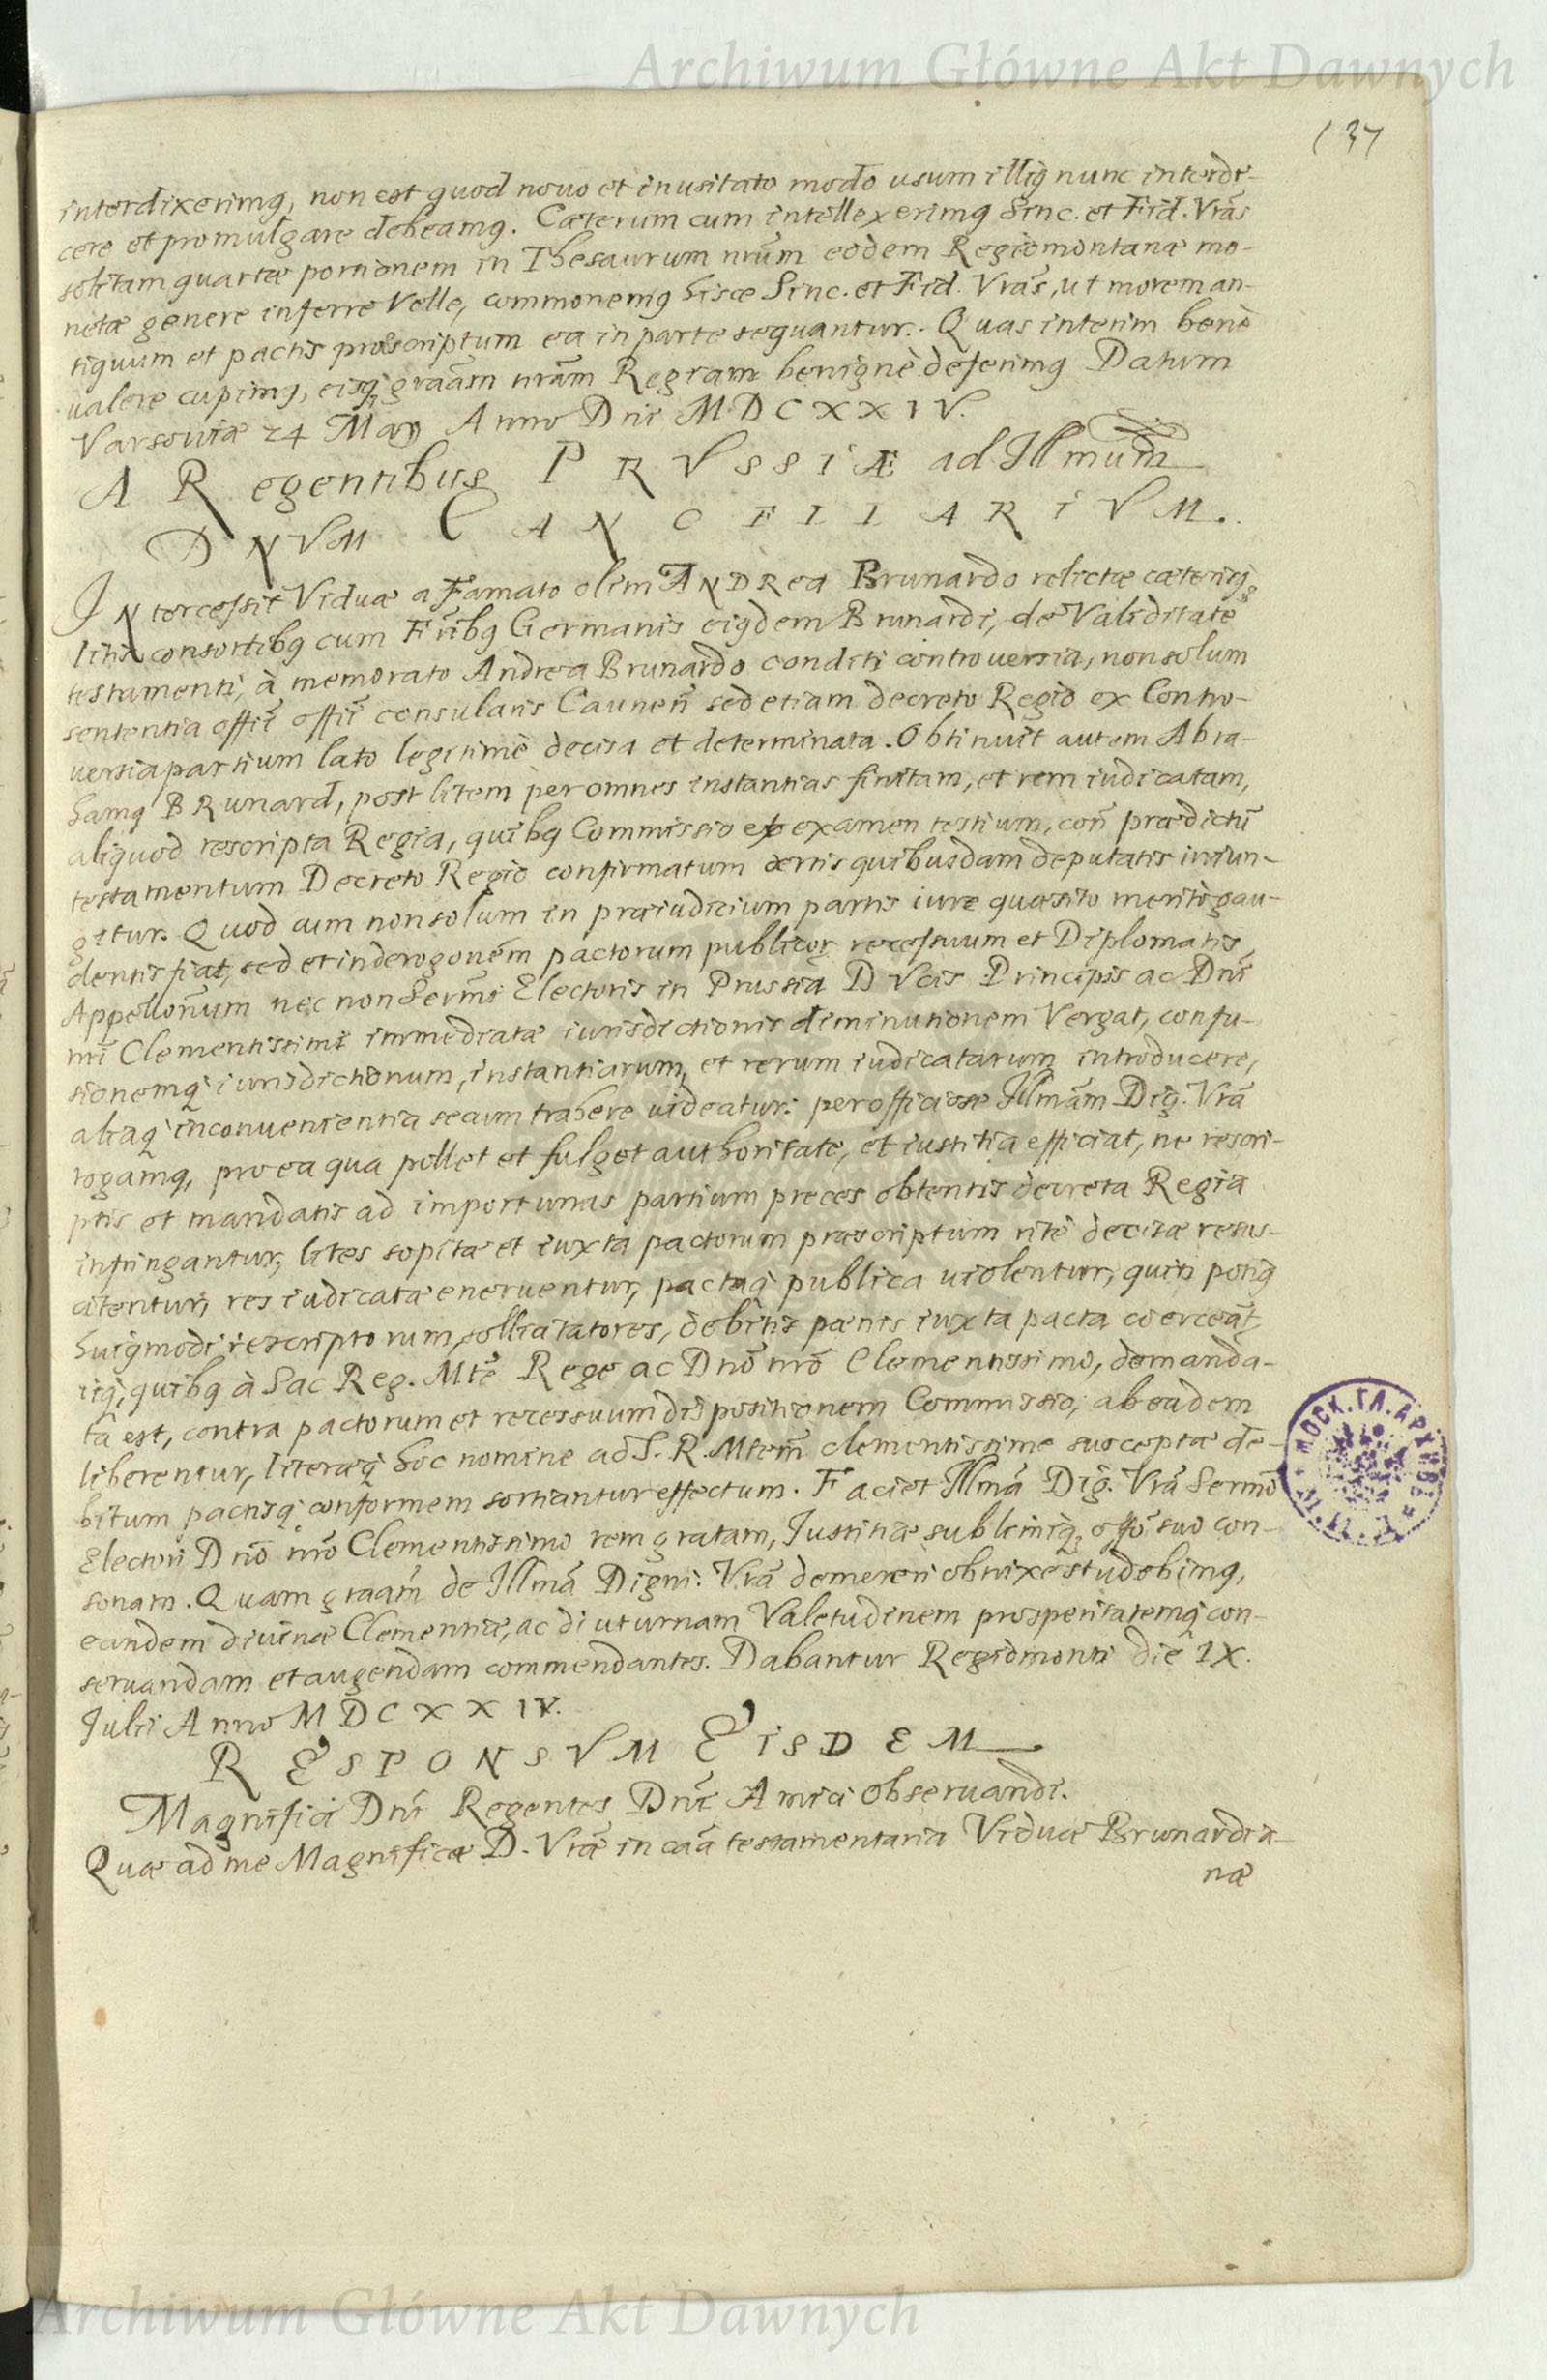 Archiwum Główne Akt Dawnych
137
interdixerimq, non est quod nouo et inusitato modo usum illiq nunc interdi-
cere et promulgare debeamq. Cæterum cum intellexerimq Sinc. et Fid. Vrãs
solitam quartæ portionem in Thesaurum nrũm eodem Regiomontanæ mo-
netæ genere inferre Velle, commonemq hisce Sinc. et Fid. Vrãs, ut morem an-
tiquum et pactis præscriptum ea in parte sequantur. Quas interim benè
ualere cupimq, eisq; graãm nrãm Regiam benignè deferimq Datum
Varsouiæ 24 Maÿ Anno Dni MDCXXIV.
A Regentibus PRVSSIÆ ad Illmum
DNVM CANCELLARIVM.
INtercessit Viduæ a Famato olim ANDRea Brunardo relictæ cæterisq;
litis consortibq cum Frĩbq Germanis eiqdem Brunardi, de Validitate
testamenti, à memorato Andrea Brunardo conditi controuersia, non solum
sententia offii offii consularis Caunen̄ sed etiam decreto Regio ex Contro-
uersia partium lato legitimè decisa et determinata. Obtinuit autem Abra-
hamq BRunard, post litem per omnes instantias finitam, et rem iudicatam,
aliquod rescripta Regia, quibq Commissio et examen testium, con̄ prædictũ
testamentum Decreto Regio confirmatum certis quibusdam deputatis iniun-
gitur. Quod cum non solum in præiudicium partis iure quæsito meritò gau-
dentis fiat, sed et in derogonẽm pactorum publicor recessuum et Diplomatis
Appellonum nec non Sermi Electoris in Prussia DVcis Principis ac Dnĩ
nrĩ Clementissimi immediatæ iurisdictionis diminutionem Vergat, confu-
sionemq; iurisdictionum, instantiarum, et rerum iudicatarum introducere,
aliaq; inconuenientia secum trahere uideatur: perofficiose Illmãm Dig. Vrã
rogamq, pro ea qua pollet et fulget authoritate, et iustitia efficiat, ne rescri-
ptis et mandatis ad importunas partium preces obtentis decreta Regia
infringantur, lites sopitæ et iuxta pactorum præscriptum ritè decisæ resus-
citentur, res iudicatæ eneruentur, pactaq; publica uiolentur, quin potiq
huiqmodi rescriptorum sollicitatores, debitis pœnis iuxta pacta coerceãt,
iiq;, quibq à Sac Reg. Mtẽ Rege ac Dnõ nrõ Clementissimo, demanda-
ta est, contra pactorum et recessuum dispositionem Commissio, ab eadem
liberentur, literæq; hoc nomine ad S. R. Mtem clementissime susceptæ de-
bitum pactisq; conformem sortiantur effectum. Faciet Illmã Dig. Vrã Sermõ
Electori Dnõ nrõ Clementissimo rem gratam, Iustitiæ sublimiq; offõ suo con-
sonam. Quam graãm de Illmã Digni: Vrã demereri obnixe studebimq,
eandem diuinæ Clementiæ, ac diuturnam Valetudinem prosperitatemq; con-
seruandam et augendam commendantes. Dabantur Regiomonti die IX.
Iulii Anno MDCXXIV.
RESPONSVM EISDEM
Magnifici Dnĩ Regentes Dnĩ Amici obseruandi.
Quæ ad me Magnificæ D. Vræ in caã testamentaria Viduæ Brunardia-
næ
МОСК. ГЛ. АРХИВЪ
Archiwum Główne Akt Dawnych